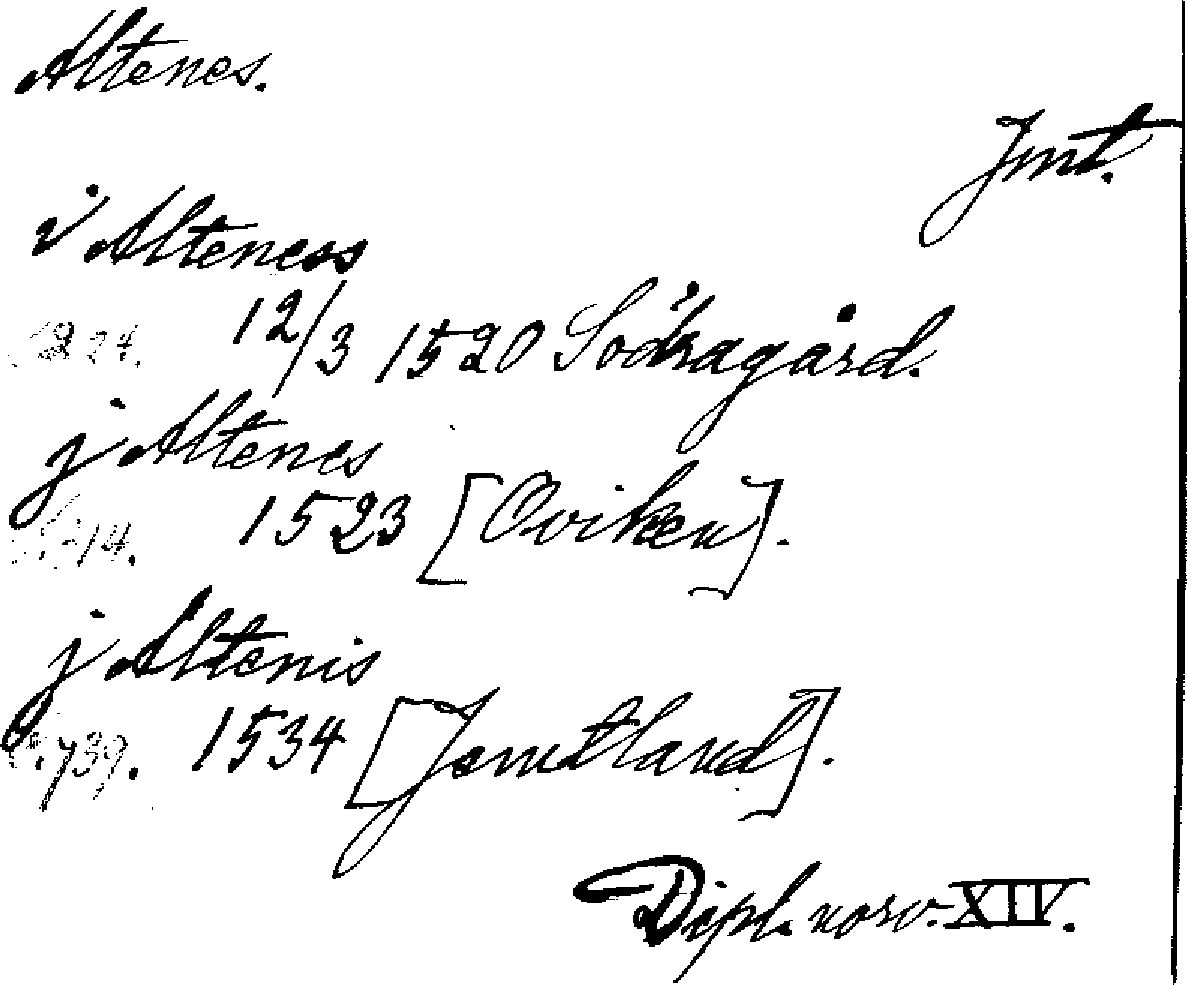 Altenes.
Jmt.
i Alteness
12/3 1520 Södragård.
j Altenes
1523 [Oviken].
j Altenis
739. 1534 [Jemtland].
Dipl. norv. XIV.